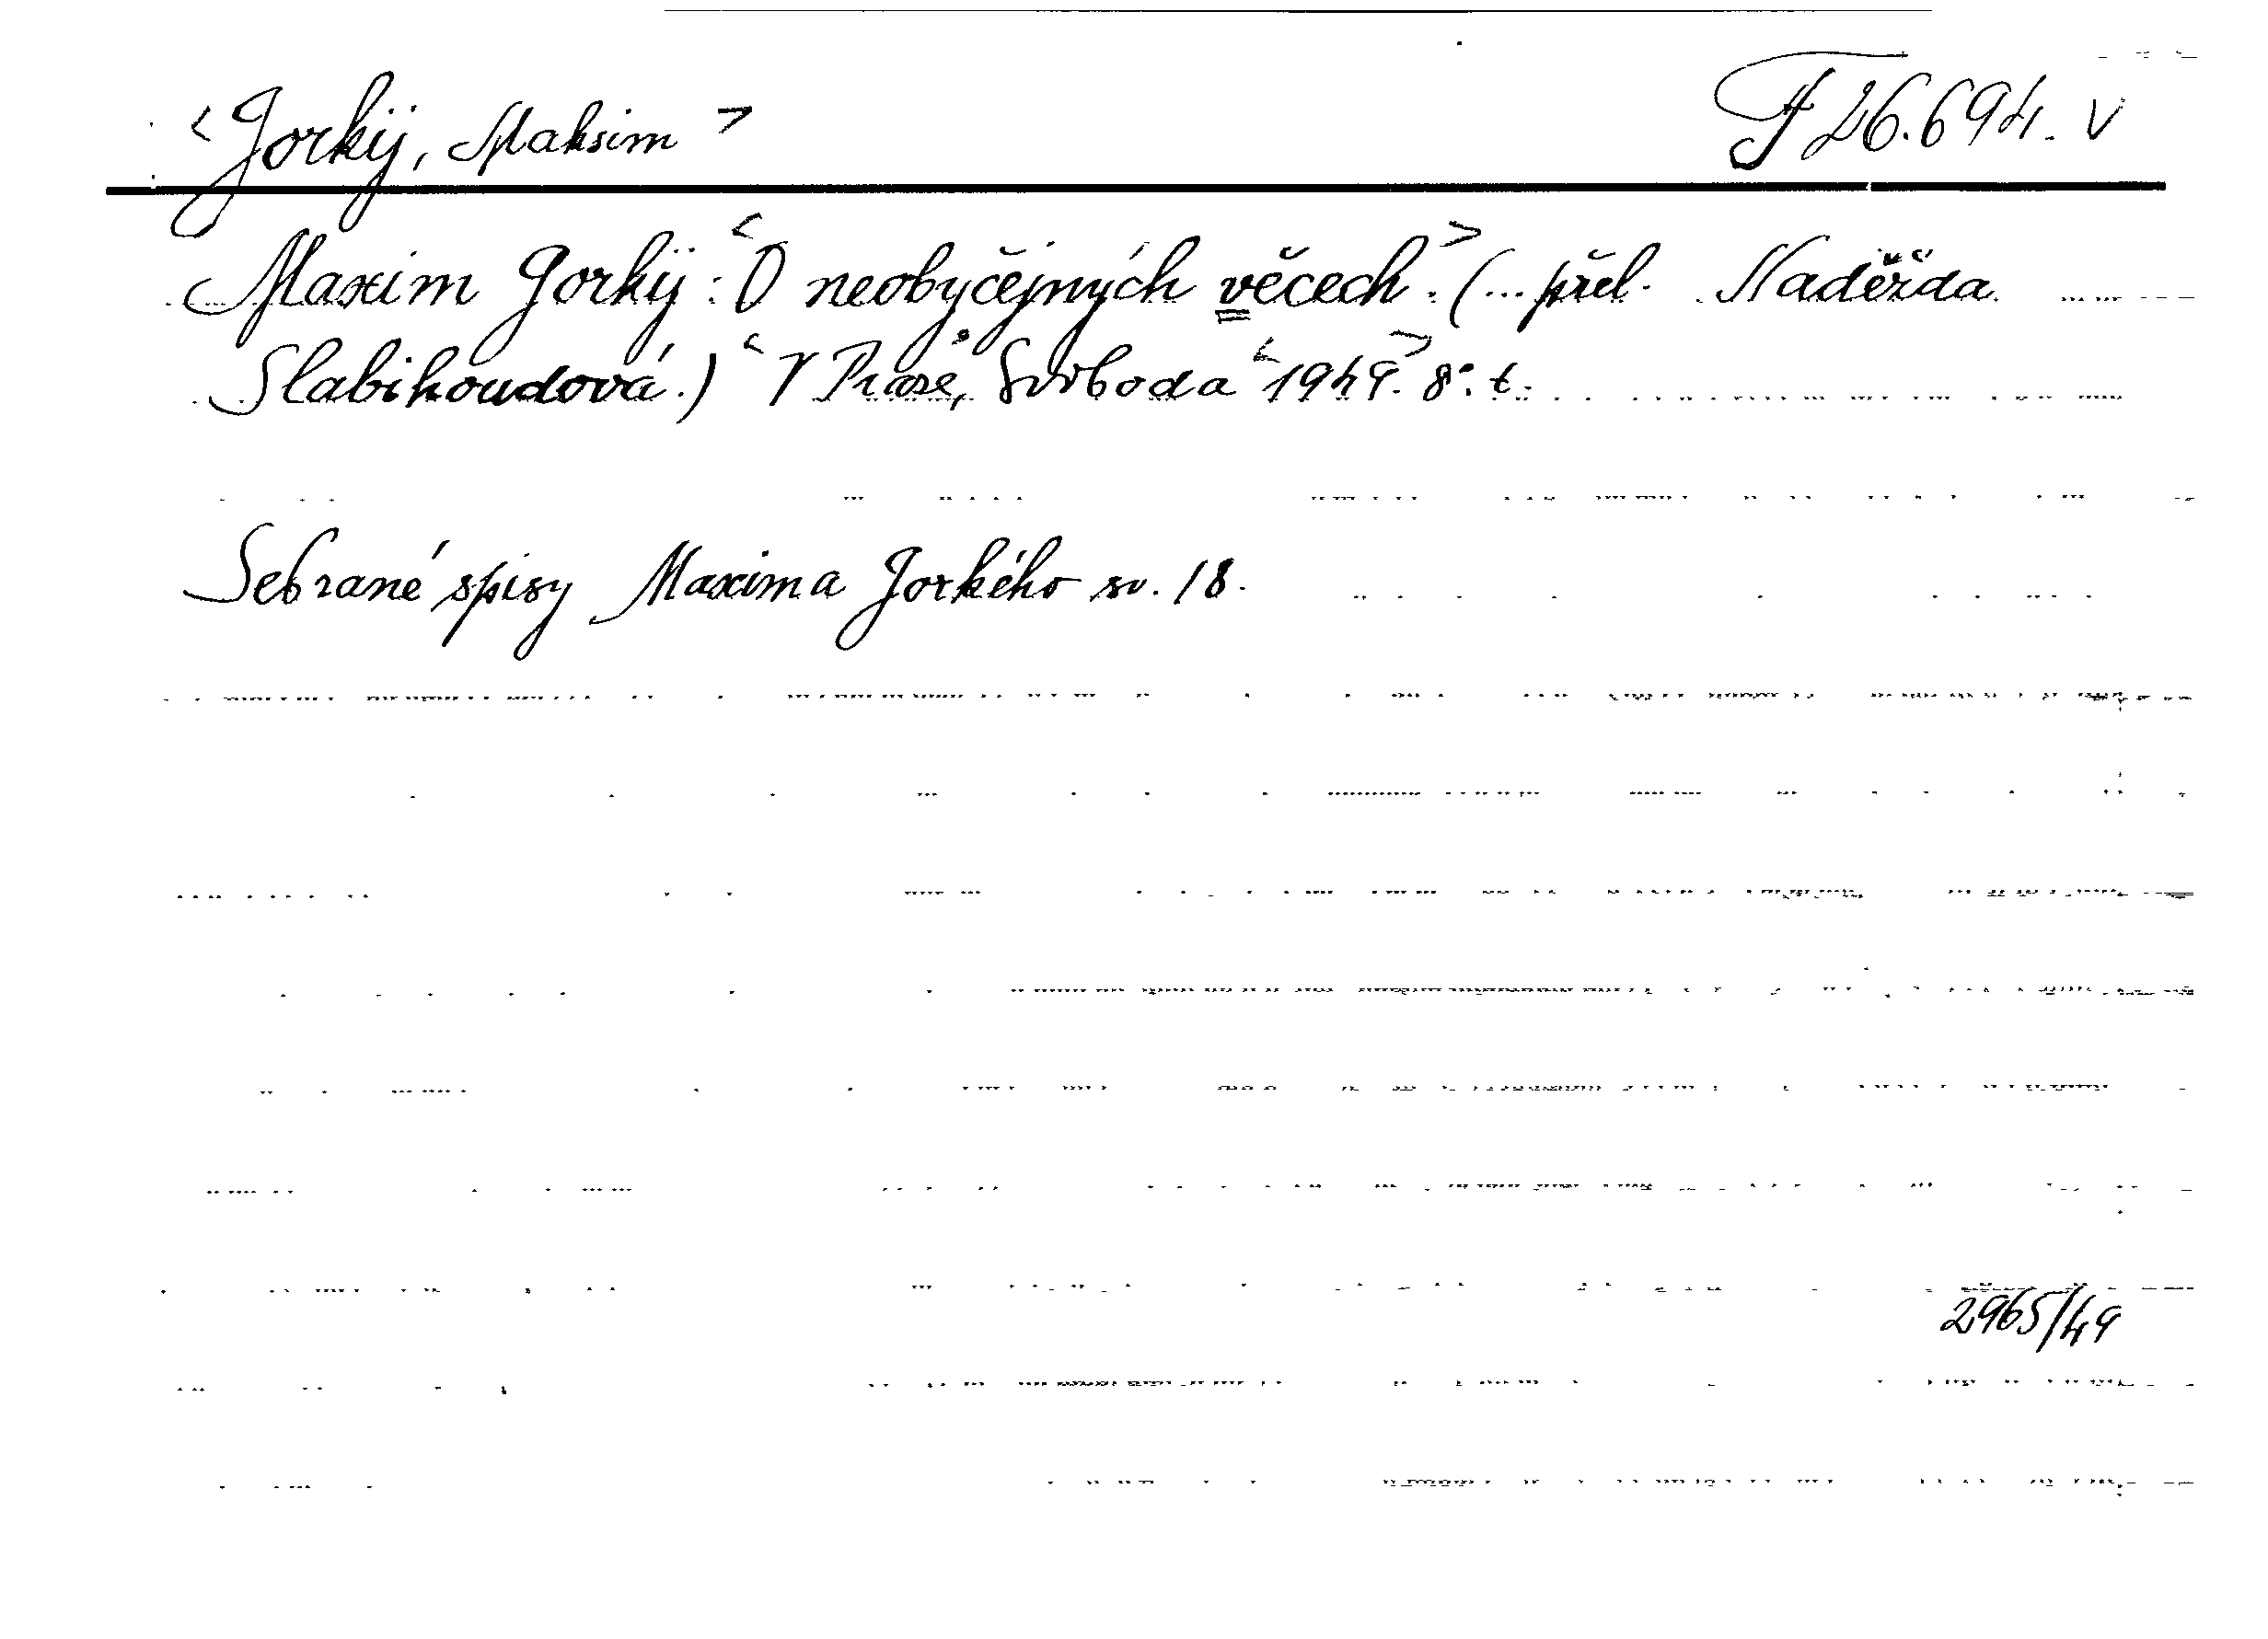 <Gorkij, Maksim> F 26.694. V
Maxim Gorkij: <O neobyčejných věcech.> (... přel. Naděžda
Slabihoudová.) <V Praze, Svoboda <1949.> 8°. t.
Sebrané spisy Maxima Gorkého sv. 18.
2965/49